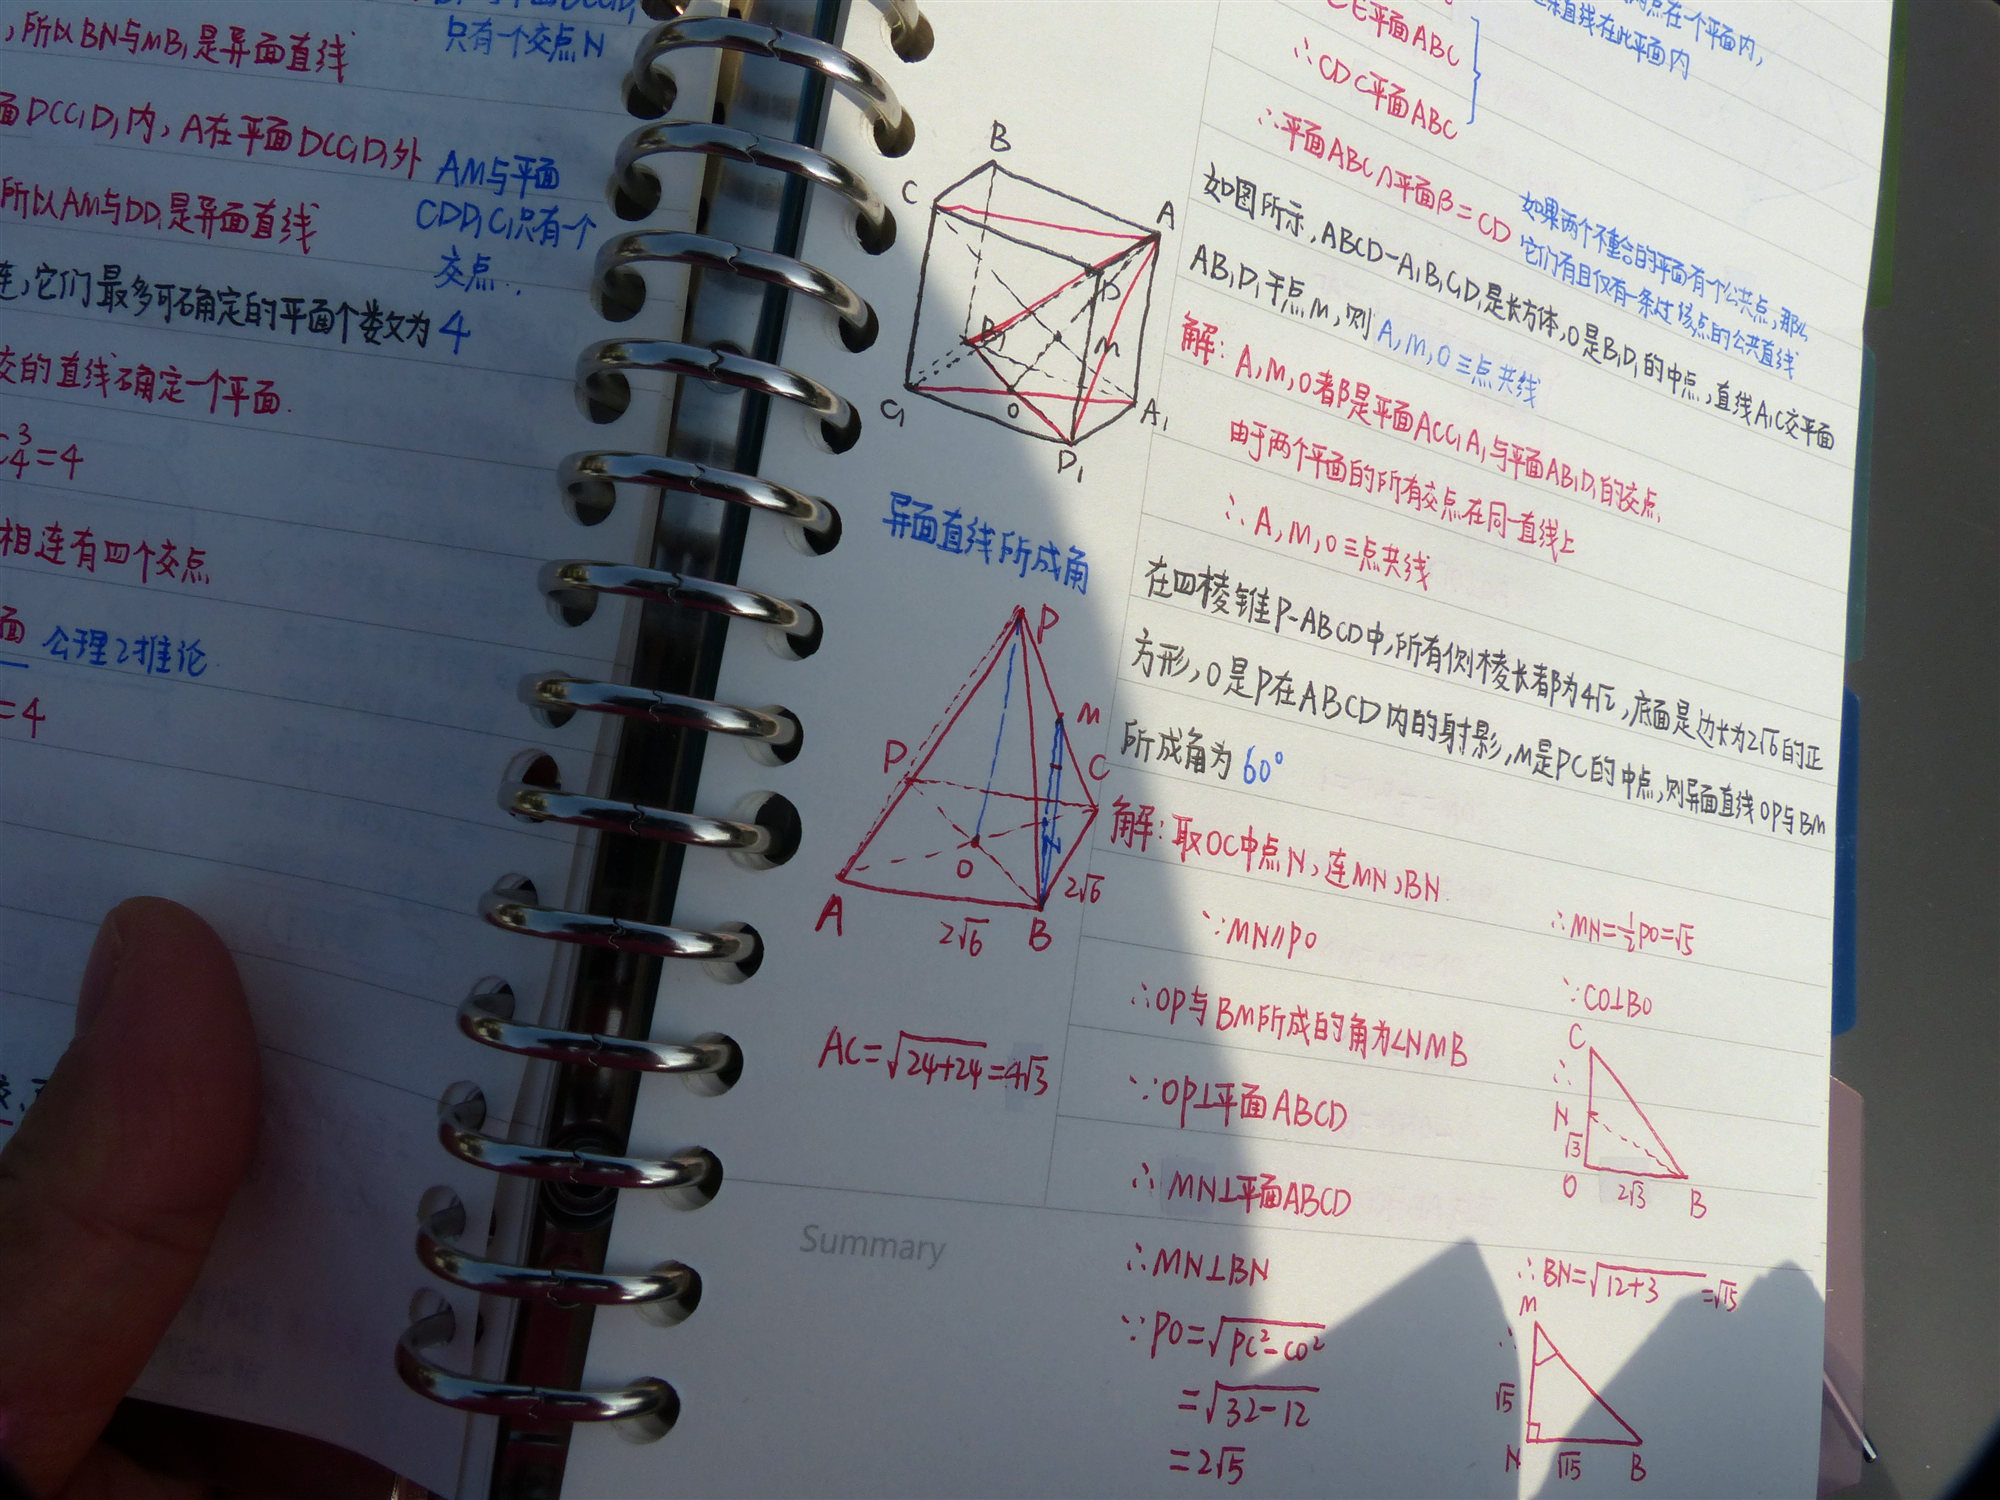 ，所以BN与MB₁是异面直线
只有一个交点N
面DCC₁D₁内，A在平面DCC₁D₁外
AM与平面
CDD₁C₁只有一个
交点..
所以AM与DD₁是异面直线
连，它们最多可确定的平面个数为4
交的直线确定一个平面.
C₄³=4
相连有四个交点
面 公理2推论
=4
两点在一个平面内，
直线在此平面内
C∈平面ABC
∴CD⊂平面ABC
∴平面ABC∩平面β=CD
如果两个不重合的平面有一个公共点，那么
它们有且仅有一条过该点的公共直线
如图所示，ABCD-A₁B₁C₁D₁是长方体，O是B₁D₁的中点，直线A₁C交平面
AB₁D₁于点M，则A，M，O三点共线
解：A，M，O都是平面ACC₁A₁与平面AB₁D₁的交点，
由于两个平面的所有交点在同一直线上
∴A，M，O三点共线
B
C
A
D
M
C₁
O
A₁
D₁
异面直线所成角
在四棱锥P-ABCD中，所有侧棱长都为4√2，底面是边长为2√6的正
方形，O是P在ABCD内的射影，M是PC的中点，则异面直线OP与BM
所成角为60°
P
M
P
C
N
O
A
2√6
B
2√6
AC=√24+24=4√3
解：取OC中点N，连MN，BN.
∵MN∥PO
∴OP与BM所成的角为∠NMB
∵OP⊥平面ABCD
∴MN⊥平面ABCD
∴MN⊥BN
∵PO=√PC²-CO²
=√32-12
=2√5
∴MN=½PO=√5
∵CO⊥BO
C
∴
N
√3
O
2√3
B
∴BN=√12+3=√15
M
∴
√5
N
√15
B
Summary